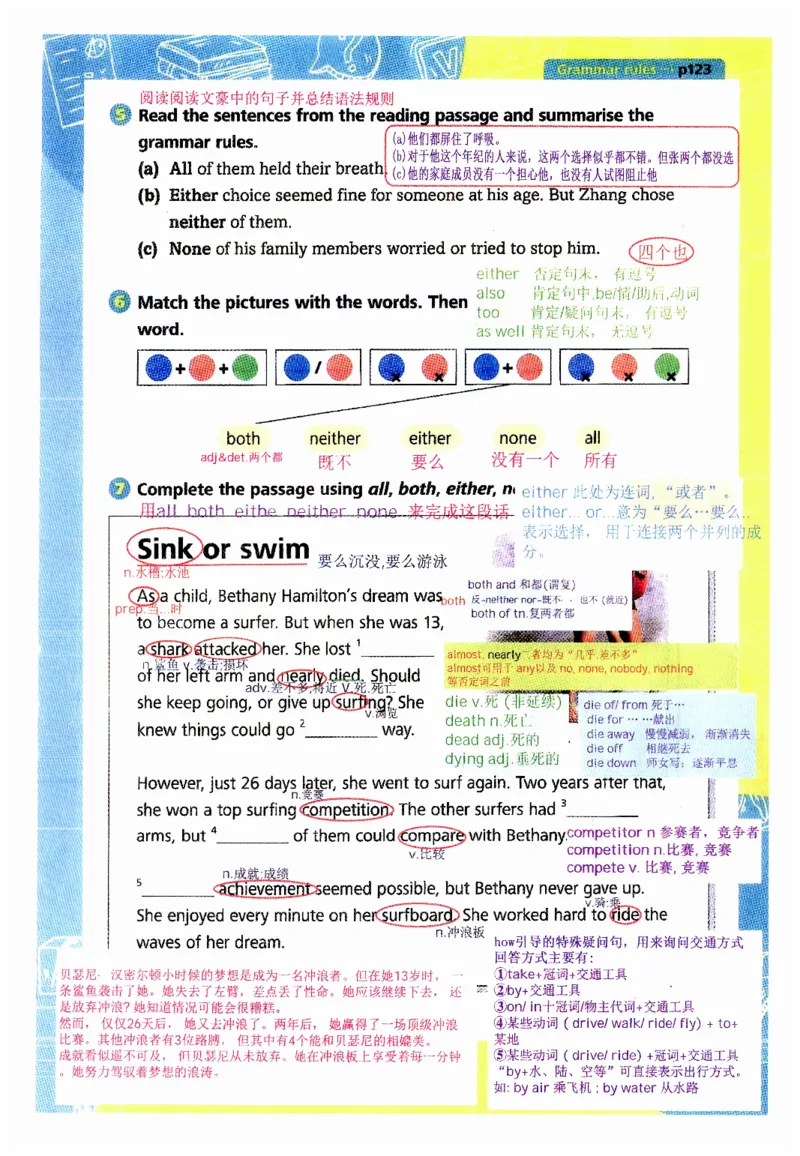 Grammar rules → p123
阅读阅读文豪中的句子并总结语法规则
5 Read the sentences from the reading passage and summarise the
grammar rules.
(a) All of them held their breath.
(b) Either choice seemed fine for someone at his age. But Zhang chose
neither of them.
(c) None of his family members worried or tried to stop him.
(a)他们都屏住了呼吸。
(b)对于他这个年纪的人来说，这两个选择似乎都不错。但张两个都没选
(c)他的家庭成员没有一个担心他，也没有人试图阻止他
四个也
either 否定句末， 有逗号
also 肯定句中,be/情/助后,动词
too 肯定/疑问句末， 有逗号
as well 肯定句末， 无逗号
6 Match the pictures with the words. Then
word.
+ + / × × + × × ×
both neither either none all
adj&det.两个都 既不 要么 没有一个 所有
7 Complete the passage using all, both, either, n
用all both eithe neither none 来完成这段话
either 此处为连词，“或者”。
either... or...意为“要么…要么..
表示选择， 用于连接两个并列的成
分。
Sink or swim
要么沉没,要么游泳
n.水槽:水池
As a child, Bethany Hamilton's dream was
prep.当...时
to become a surfer. But when she was 13,
a shark attacked her. She lost 1
n.鲨鱼 v.袭击:损坏
of her left arm and nearly died. Should
adv.差不多,将近 v.死,死亡
she keep going, or give up surfing? She
v.浏览
knew things could go 2 way.
both and 和都(谓复)
both 反-neither nor-既不 · 也不 (就近)
both of tn.复两者都
almost, nearly二者均为“几乎,差不多”
almost可用于 any以及 no, none, nobody, nothing
等否定词之前
die v.死 (非延续)
death n.死亡
dead adj.死的
dying adj.垂死的
die of/ from 死于…
die for … …献出
die away 慢慢减弱， 渐渐消失
die off 相继死去
die down 师女写：逐渐平息
However, just 26 days later, she went to surf again. Two years after that,
n.竞赛
she won a top surfing competition. The other surfers had 3
arms, but 4 of them could compare with Bethany.
v.比较
competitor n 参赛者，竞争者
competition n.比赛, 竞赛
compete v. 比赛, 竞赛
n.成就:成绩
5 achievement seemed possible, but Bethany never gave up.
v.骑:乘
She enjoyed every minute on her surfboard. She worked hard to ride the
n.冲浪板
waves of her dream.
贝瑟尼· 汉密尔顿小时候的梦想是成为一名冲浪者。但在她13岁时， 一
条鲨鱼袭击了她。她失去了左臂，差点丢了性命。她应该继续下去， 还
是放弃冲浪? 她知道情况可能会很糟糕。
然而， 仅仅26天后， 她又去冲浪了。两年后， 她赢得了一场顶级冲浪
比赛。其他冲浪者有3位路膊， 但其中有4个能和贝瑟尼的相媲美。
成就看似遥不可及， 但贝瑟尼从未放弃。她在冲浪板上享受着每一分钟
。她努力驾驭着梦想的浪涛。
how引导的特殊疑问句，用来询问交通方式
回答方式主要有：
①take+冠词+交通工具
②by+交通工具
③on/ in十冠词/物主代词+交通工具
④某些动词 ( drive/ walk/ ride/ fly) + to+
某地
⑤某些动词 ( drive/ ride) +冠词+交通工具
“by+水、陆、空等”可直接表示出行方式。
如: by air 乘飞机 ; by water 从水路